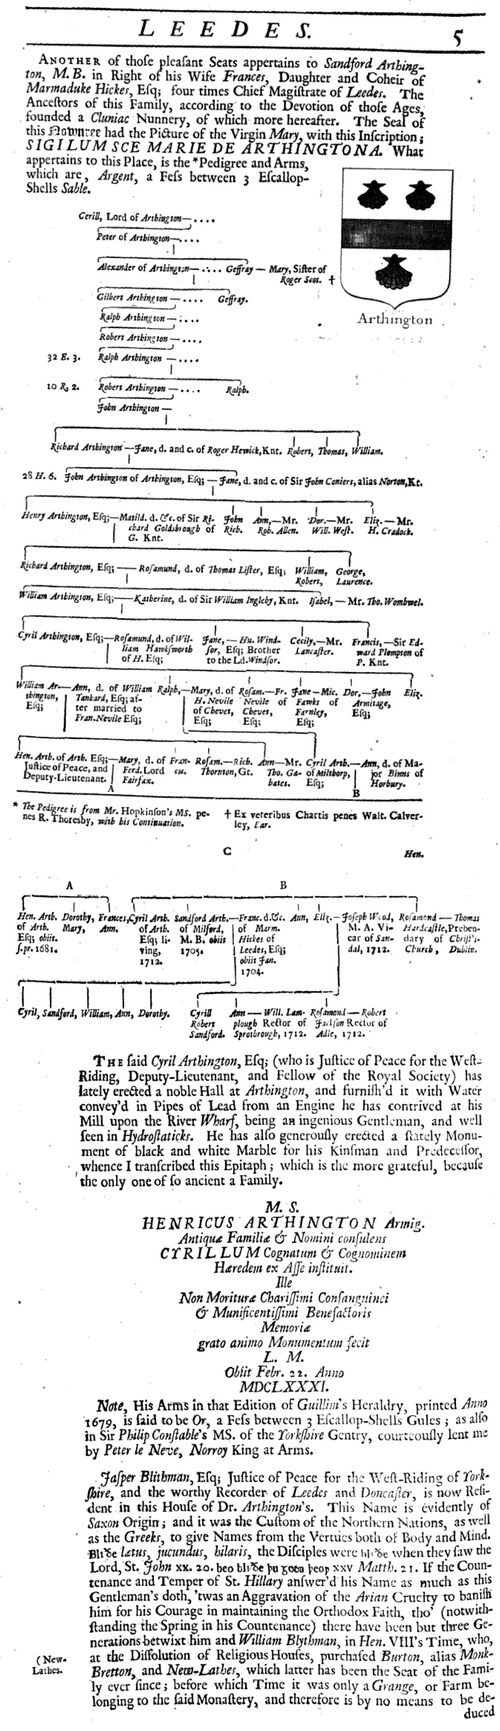 LEEDES. 5
ANOTHER of thoſe pleaſant Seats appertains to Sandford Arthing-
ton, M.B. in Right of his Wife Frances, Daughter and Coheir of
Marmaduke Hickes, Eſq; four times Chief Magiſtrate of Leedes. The
Anceſtors of this Family, according to the Devotion of thoſe Ages,
founded a Cluniac Nunnery, of which more hereafter. The Seal of
this had the Picture of the Virgin Mary, with this Inſcription;
SIGILUM SCE MARIE DE ARTHINGTONA. What
appertains to this Place, is the *Pedigree and Arms,
which are, Argent, a Feſs between 3 Eſcallop-
Shells Sable.
Arthington
Cerill, Lord of Arthington—....
Peter of Arthington—....
Alexander of Arthington—.... Geffray — Mary, Siſter of
Roger Scot. †
Gilbert Arthington — .... Geffray.
Ralph Arthington — ....
Robert Arthington — ....
32 E. 3. Ralph Arthington — ....
10 R. 2. Robert Arthington — .... Ralph.
John Arthington —
Richard Arthington—Jane, d. and c. of Roger Hewick, Knt. Robert, Thomas, William.
28 H. 6. John Arthington of Arthington, Eſq; — Jane, d. and c. of Sir John Coniers, alias Norton, Kt.
Henry Arthington, Eſq;—Matild. d. &c. of Sir Ri- John Ann,—Mr. Dor.—Mr. Eliz. — Mr.
chard Goldsbrough of Rich. Rob. Allen. Will. Weſt. H. Cradock.
G. Knt.
Richard Arthington, Eſq; —— Roſamund, d. of Thomas Liſter, Eſq; William, George,
Robert, Laurence.
William Arthington, Eſq;—— Katherine, d. of Sir William Ingleby, Knt. Iſabel, — Mr. Tho. Wombwel.
Cyril Arthington, Eſq;—Roſamund, d. of Wil- Jane,— Hu. Wind- Cecily,—Mr. Francis,—Sir Ed-
liam Hawkſworth ſor, Eſq; Brother Lancaſter. ward Plompton of
of H. Eſq; to the Ld. Windſor. P. Knt.
William Ar-—Ann, d. of William Ralph,—Mary, d. of Roſam.—Fr. Jane—Mic. Dor.—John Eliz.
thington, Tankard, Eſq; af- H. Nevile Nevile of Fawks of Armitage,
Eſq; ter married to of Chevet, Chevet, Farnley, Eſq;
Fran. Nevile Eſq; Eſq; Eſq; Eſq;
Hen. Arth. of Arth. Eſq;—Mary, d. of Fran- Roſam.—Rich. Ann—Mr. Cyril Arth.—Ann, d. of Ma-
Juſtice of Peace, and Ferd. Lord ces. Thornton, Gt. Tho. Ga- of Milthorp, jor Binns of
Deputy-Lieutenant. Fairfax. bates. Eſq; Horbury.
A B
* The Pedigree is from Mr. Hopkinſon's MS. pe- † Ex veteribus Chartis penes Walt. Calver-
nes R. Thoresby, with his Continuation. ley, Ear.
C Hen.
A B
Hen. Arth. Dorothy, Frances, Cyril Arth. Sandford Arth.—Franc. d. &c. Ann, Eliz.—Joſeph Wood, Roſamond — Thomas
of Arth. Mary, Ann. of Arth. of Milford, of Marm. M. A. Vi- Hardcaſtle, Preben-
Eſq; obiit. Eſq; li- M. B. obiit Hickes of car of San- dary of Chriſt's-
ſ. pr. 1681. ving, 1705. Leedes, Eſq; dal, 1712. Church, Dublin.
1712. obiit Jan.
1704.
Cyril, Sandford, William, Ann, Dorothy. Cyrill Ann — Will. Lam- Roſamond — Robert
Robert plough Rector of Jackſon Rector of
Sandford. Sprotbrough, 1712. Adle, 1712.
THE ſaid Cyril Arthington, Eſq; (who is Juſtice of Peace for the Weſt-
Riding, Deputy-Lieutenant, and Fellow of the Royal Society) has
lately erected a noble Hall at Arthington, and furniſh'd it with Water
convey'd in Pipes of Lead from an Engine he has contrived at his
Mill upon the River Wharf, being an ingenious Gentleman, and well
ſeen in Hydroſtaticks. He has alſo generouſly erected a ſtately Monu-
ment of black and white Marble for his Kinſman and Predeceſſor,
whence I tranſcribed this Epitaph; which is the more grateful, becauſe
the only one of ſo ancient a Family.
M. S.
HENRICUS ARTHINGTON Armig.
Antiquæ Familiæ & Nomini conſulens
CYRILLUM Cognatum & Cognominem
Hæredem ex Aſſe inſtituit.
Ille
Non Morituræ Chariſſimi Conſanguinei
& Munificentiſſimi Benefactoris
Memoriæ
grato animo Monumentum fecit
L. M.
Obiit Febr. 22. Anno
MDCLXXXI.
Note, His Arms in that Edition of Guillim's Heraldry, printed Anno
1679, is ſaid to be Or, a Feſs between 3 Eſcallop-Shells Gules; as alſo
in Sir Philip Conſtable's MS. of the Yorkſhire Gentry, courteouſly lent me
by Peter le Neve, Norroy King at Arms.
Jaſper Blithman, Eſq; Juſtice of Peace for the Weſt-Riding of York-
ſhire, and the worthy Recorder of Leedes and Doncaſter, is now Reſi-
dent in this Houſe of Dr. Arthington's. This Name is evidently of
Saxon Origin; and it was the Cuſtom of the Northern Nations, as well
as the Greeks, to give Names from the Vertues both of Body and Mind.
Bliðe lætus, jucundus, hilaris, the Diſciples were bliðe when they ſaw the
Lord, St. John XX. 20. beo bliðe þu goda þeop XXV Matth. 21. If the Coun-
tenance and Temper of St. Hillary anſwer'd his Name as much as this
Gentleman's doth, 'twas an Aggravation of the Arian Cruelty to baniſh
him for his Courage in maintaining the Orthodox Faith, tho' (notwith-
ſtanding the Spring in his Countenance) there have been but three Ge-
nerations betwixt him and William Blythman, in Hen. VIII's Time, who,
at the Diſſolution of Religious Houſes, purchaſed Burton, alias Monk-
(New-
Lathes.
Bretton, and New-Lathes, which latter has been the Seat of the Fami-
ly ever ſince; before which Time it was only a Grange, or Farm be-
longing to the ſaid Monaſtery, and therefore is by no means to be de-
duced